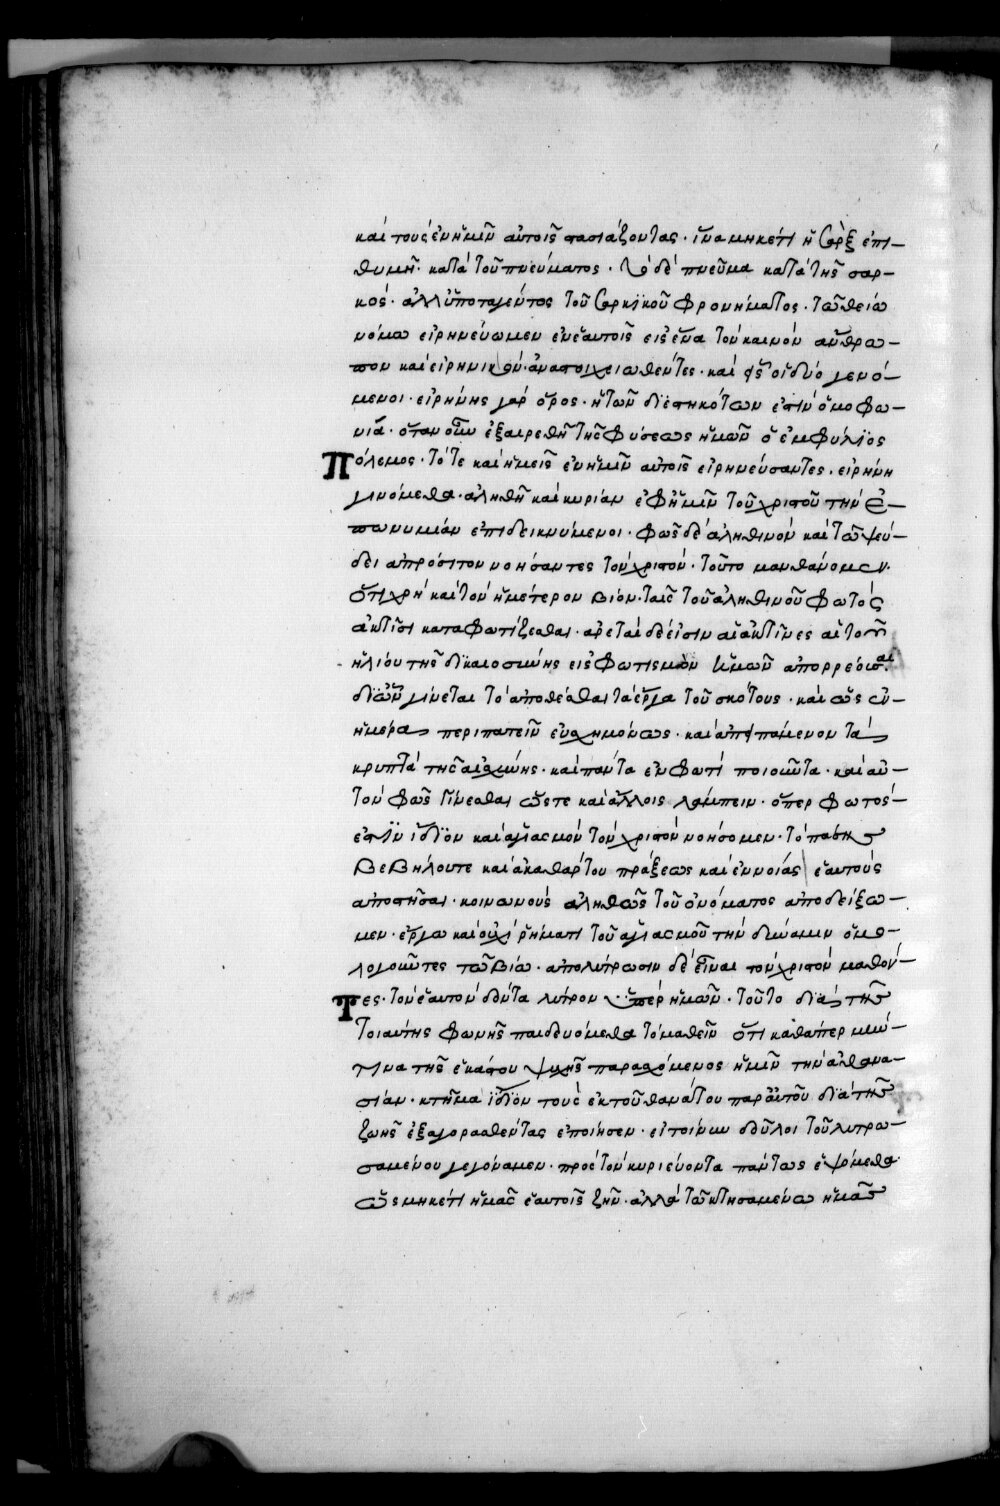 καὶ τοὺς ἐν ἡμῖν αὐτοῖς στασιάζοντας · ἵνα μηκέτι ἡ σὰρξ ἐπι-
θυμῇ · κατὰ τοῦ πνεύματος · τὸ δὲ πνεῦμα κατὰ τῆς σαρ-
κός · ἀλλ' ὑποταγέντος τοῦ σαρκικοῦ φρονήματος · τῶ θείω
νόμω εἰρηνεύωμεν ἐν ἑαυτοῖς εἰς ἕνα τὸν καινὸν ἄνθρω-
πον καὶ εἰρηνικὸν · ἀναστοιχειωθέντες · καὶ εἷς οἱ δύο γενό-
μενοι · εἰρήνης γὰρ ὅρος · ἡ τῶν διεστηκότων ἐστὶν ὁμοφω-
νία · ὅταν οὖν ἐξαιρεθῇ τῆς φύσεως ἡμῶν ὁ ἐμφύλιος
πόλεμος · τότε καὶ ἡμεῖς ἐν ἡμῖν αὐτοῖς εἰρηνεύσαντες · εἰρήνη
γινόμεθα · ἀληθῆ καὶ κυρίαν ἐφ' ἡμῖν τοῦ χριστοῦ τὴν ἐ-
πωνυμίαν ἐπιδεικνύμενοι · φῶς δὲ ἀληθινὸν καὶ τῶ ψεύ-
δει ἀπρόσιτον νοήσαντες τὸν χριστόν · τοῦτο μανθάνομεν ·
ὅτι χρὴ καὶ τὸν ἡμέτερον βίον · ταῖς τοῦ ἀληθινοῦ φωτὸς
ἀκτῖσι καταφωτίζεσθαι · ἀρεταὶ δέ εἰσιν αἱ ἀκτῖνες αἱ τοῦ
ἡλίου τῆς δικαιοσύνης εἰς φωτισμὸν ἡμῶν ἀπορρέουσαι
δι' ὧν γίνεται τὸ ἀποθέσθαι τὰ ἔργα τοῦ σκότους · καὶ ὡς ἐν
ἡμέρα περιπατεῖν εὐσχημόνως · καὶ ἀπειπάμενον τὰ
κρυπτὰ τῆς αἰσχύνης · καὶ πάντα ἐν φωτὶ ποιοῦντα · καὶ αὐ-
τὸν φῶς γίνεσθαι ὥστε καὶ ἄλλοις λάμπειν · ὅπερ φωτός
ἐστιν ἴδιον καὶ ἁγιασμὸν τὸν χριστὸν νοήσομεν · τὸ πάσης
βεβήλου τε καὶ ἀκαθάρτου πράξεως καὶ ἐννοίας ἑαυτοὺς
ἀποστῆσαι · κοινωνοὺς ἀληθῶς τοῦ ὀνόματος ἀποδείξω-
μεν · ἔργω καὶ οὐχὶ ῥήματι τοῦ ἁγιασμοῦ τὴν δύναμιν ὁμο-
λογοῦντες τῶ βίω · ἀπολύτρωσιν δὲ εἶναι τὸν χριστὸν μαθόν-
τες · τὸν ἑαυτὸν δόντα λύτρον ὑπὲρ ἡμῶν · τοῦτο διὰ τῆς
τοιαύτης φωνῆς παιδευόμεθα τὸ μαθεῖν ὅτι καθάπερ
τινα τῆς ἑκάστου ψυχῆς παρασχόμενος ἡμῖν τὴν ἀθανα-
σίαν · κτῆμα ἴδιον τοὺς ἐκ τοῦ θανάτου παρ' αὐτοῦ διὰ τῆς
ζωῆς ἐξαγορασθέντας ἐποίησεν · εἰ τοίνυν δοῦλοι τοῦ λυτρω-
σαμένου γεγόναμεν · πρὸς τὸν κυριεύοντα πάντως ἑψόμεθα
ὡς μηκέτι ἡμᾶς ἑαυτοῖς ζῆν · ἀλλὰ τῶ κτησαμένω ἡμᾶς